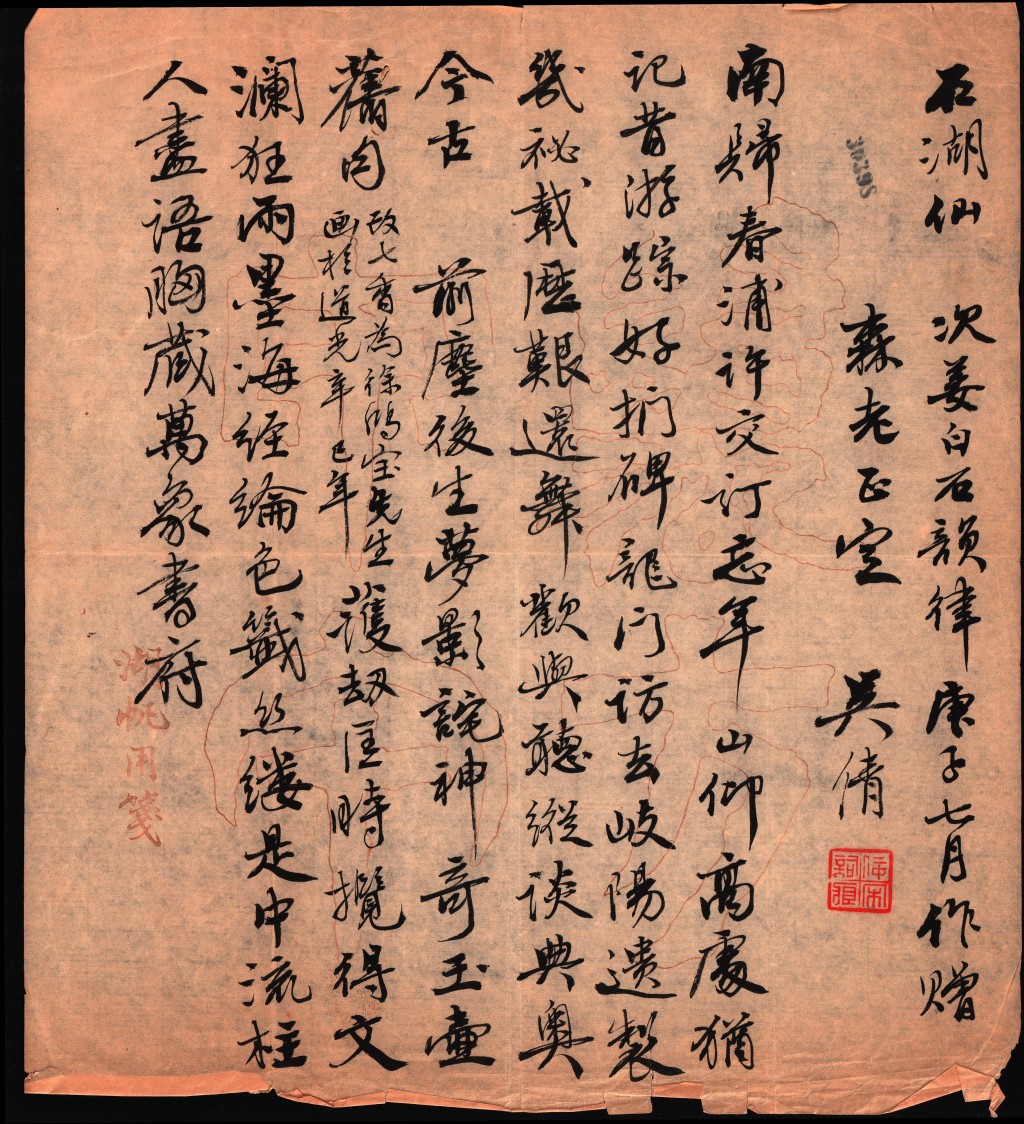 石湖仙 次姜白石韻律 庚子七月作贈
森老正定 吳倩
佞宋詞痕
南歸春浦許交訂忘年 山仰高處猶
記昔游踪好捫碑龍門访去岐陽遺製
幾祕載歷艱還舞 歡與聽縱談典奧
今古 前塵後生夢影詫神奇玉壺
舊句 改七香為徐鴻宝先生
画於道光辛巳年
護劫匡時攬得文
瀾狂雨墨海经綸色籤丝縷是中流柱
人盡語胸藏萬象書府
湖帆用箋